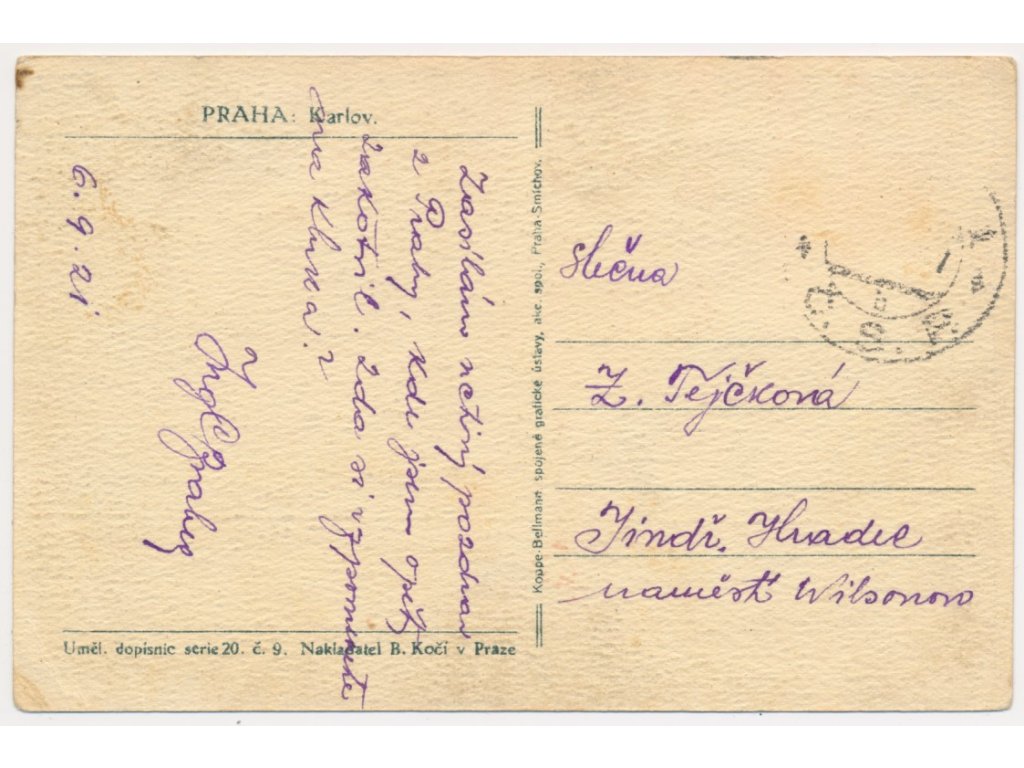 PRAHA: Karlov.
6. 9. 21.
Zasílám uctivý pozdrav
z Prahy, kde jsem opět
zakotvil. Zda si vzpomenete
na kluka?
Slečna
Z. Tejčková
Jindř. Hradec
naměstí Wilsonovo
Koppe-Bellmann spojené grafické ústavy, akc. spol., Praha-Smíchov.
Uměl. dopisnic serie 20. č. 9. Nakladatel B. Kočí v Praze